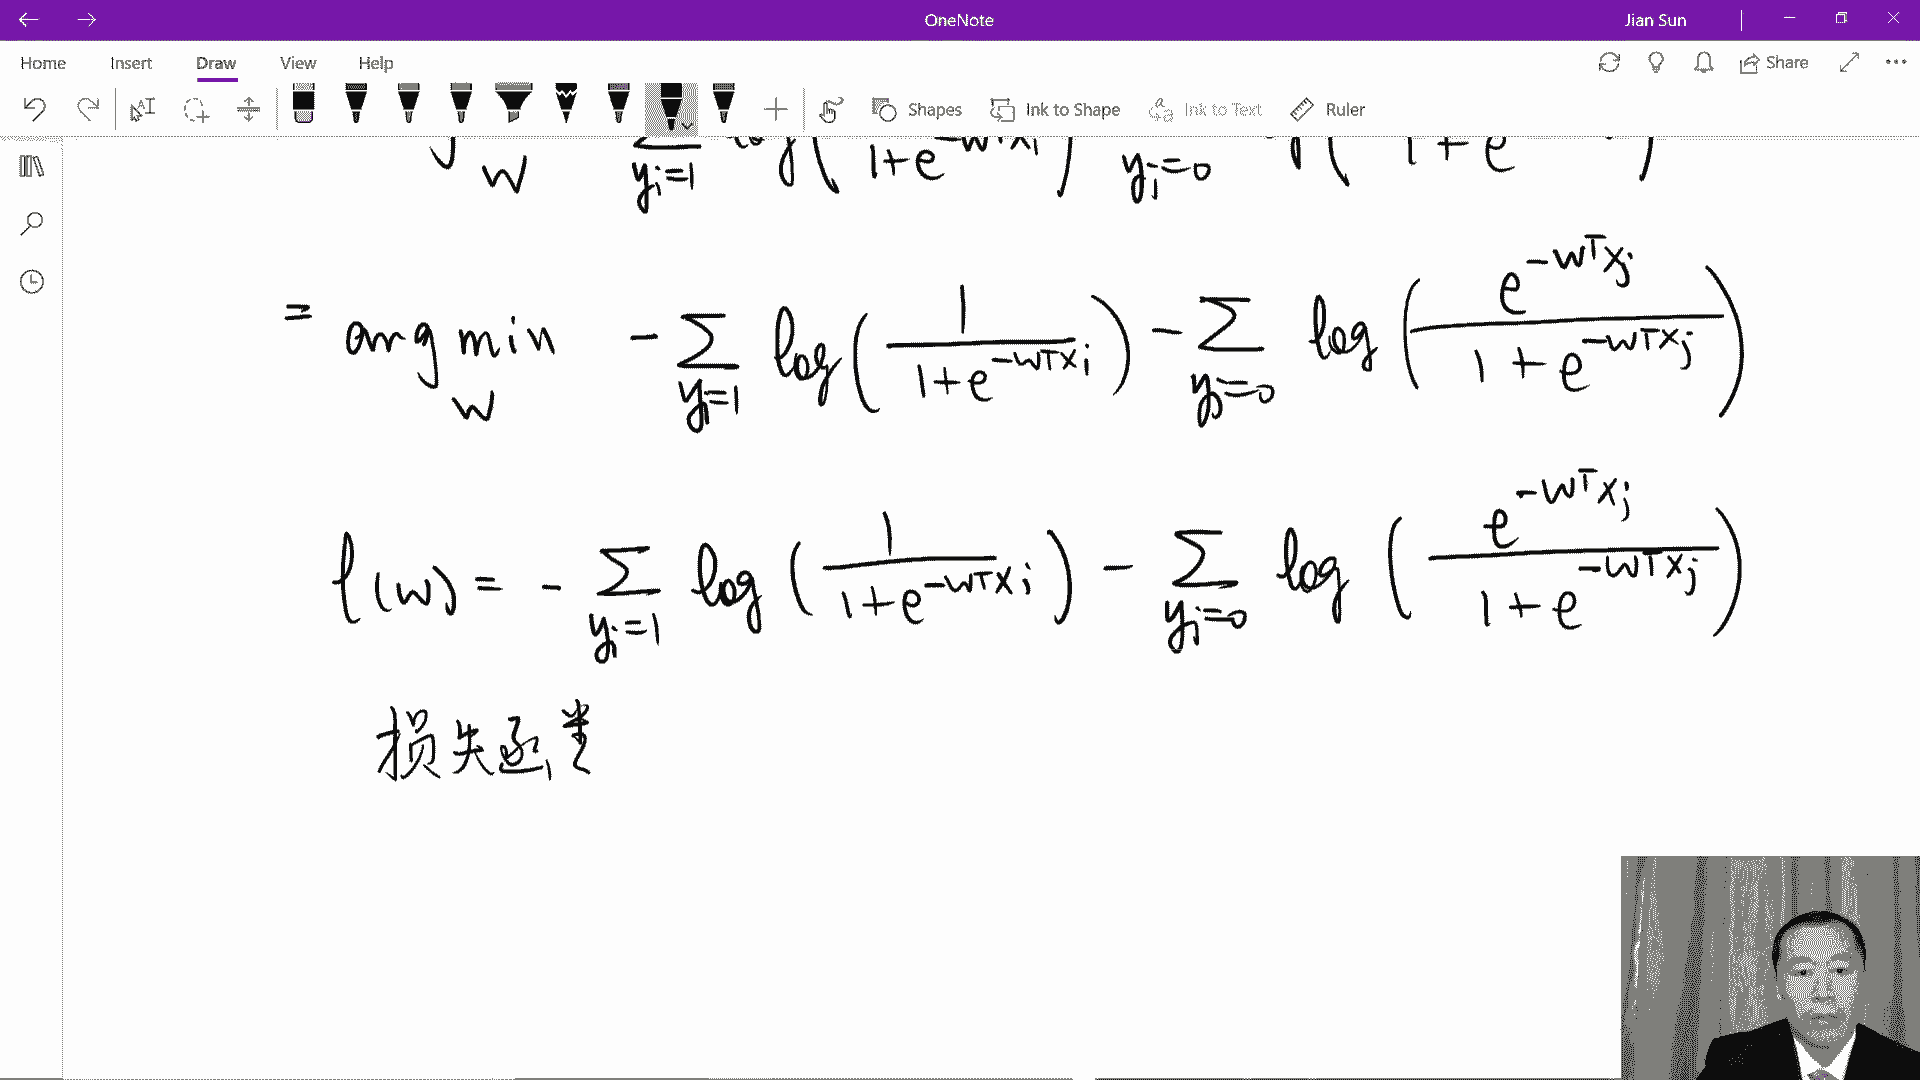 OneNote
Jian Sun
Home Insert Draw View Help
Share
Shapes Ink to Shape Ink to Text Ruler
w Σ yi=1 log( 1+e^-wᵀxi ) yj=0 ( 1+e )
= arg min w - Σ yi=1 log( 1 / 1+e^-wᵀxi ) - Σ yj=0 log( e^-wᵀxj / 1+e^-wᵀxj )
l(w) = - Σ yi=1 log( 1 / 1+e^-wᵀxi ) - Σ yj=0 log( e^-wᵀxj / 1+e^-wᵀxj )
损失函